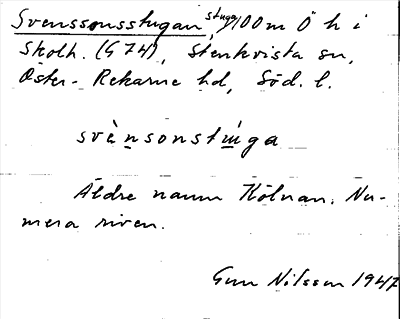 Svenssonsstugan, stuga, 100 m Ö h i
Skolh. (G 74), Stenkvista sn,
Öster-Rekarne hd, Söd. l.
svènsonstùga
Äldre namn Kölnan. Nu-
mera riven.
Gun Nilsson 1947